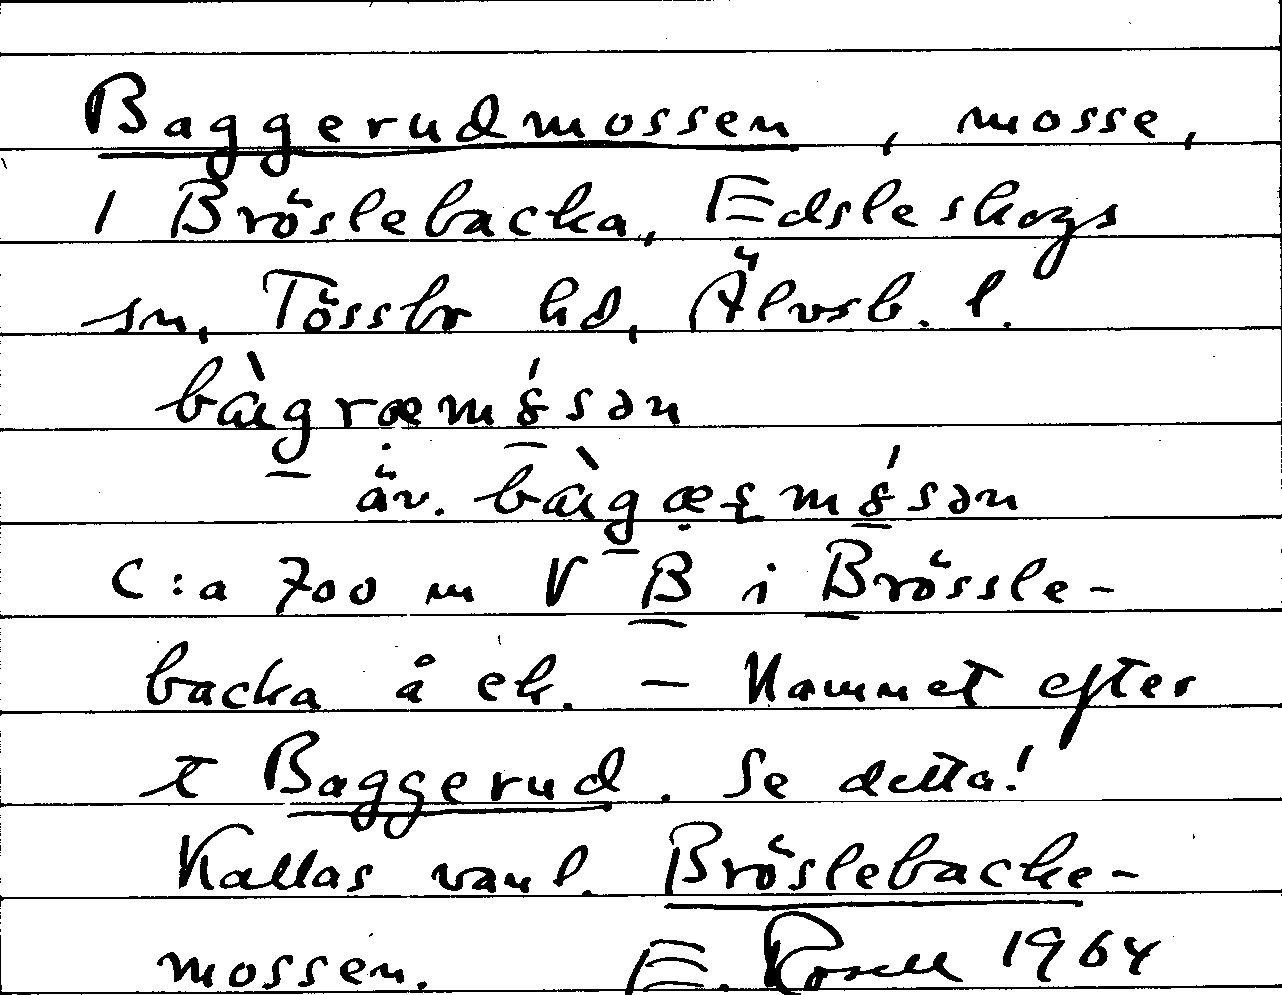 Baggerudmossen, mosse,
i Bröslebacka, Edsleskogs
sn, Tössbo hd, Älvsb. l.
bàgræmósən
äv. bàgæṣmósən
C:a 700 m V B i Brössle-
backa å ek. – Namnet efter
t Baggerud. Se detta!
Kallas vanl. Bröslebacke-
mossen. E. Rosell 1964